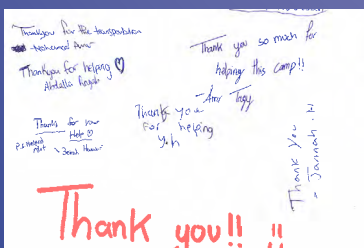 Thank you for the transportation
- Mohamed Amr
Thank you for helping ♡
Abdalla
Thank you so much for
helping this camp!!
- Amr
Thanks for your
Help ♡
Thank you
For helping
Y.h
Thank you
- Jannah . H
Thank you!! !!